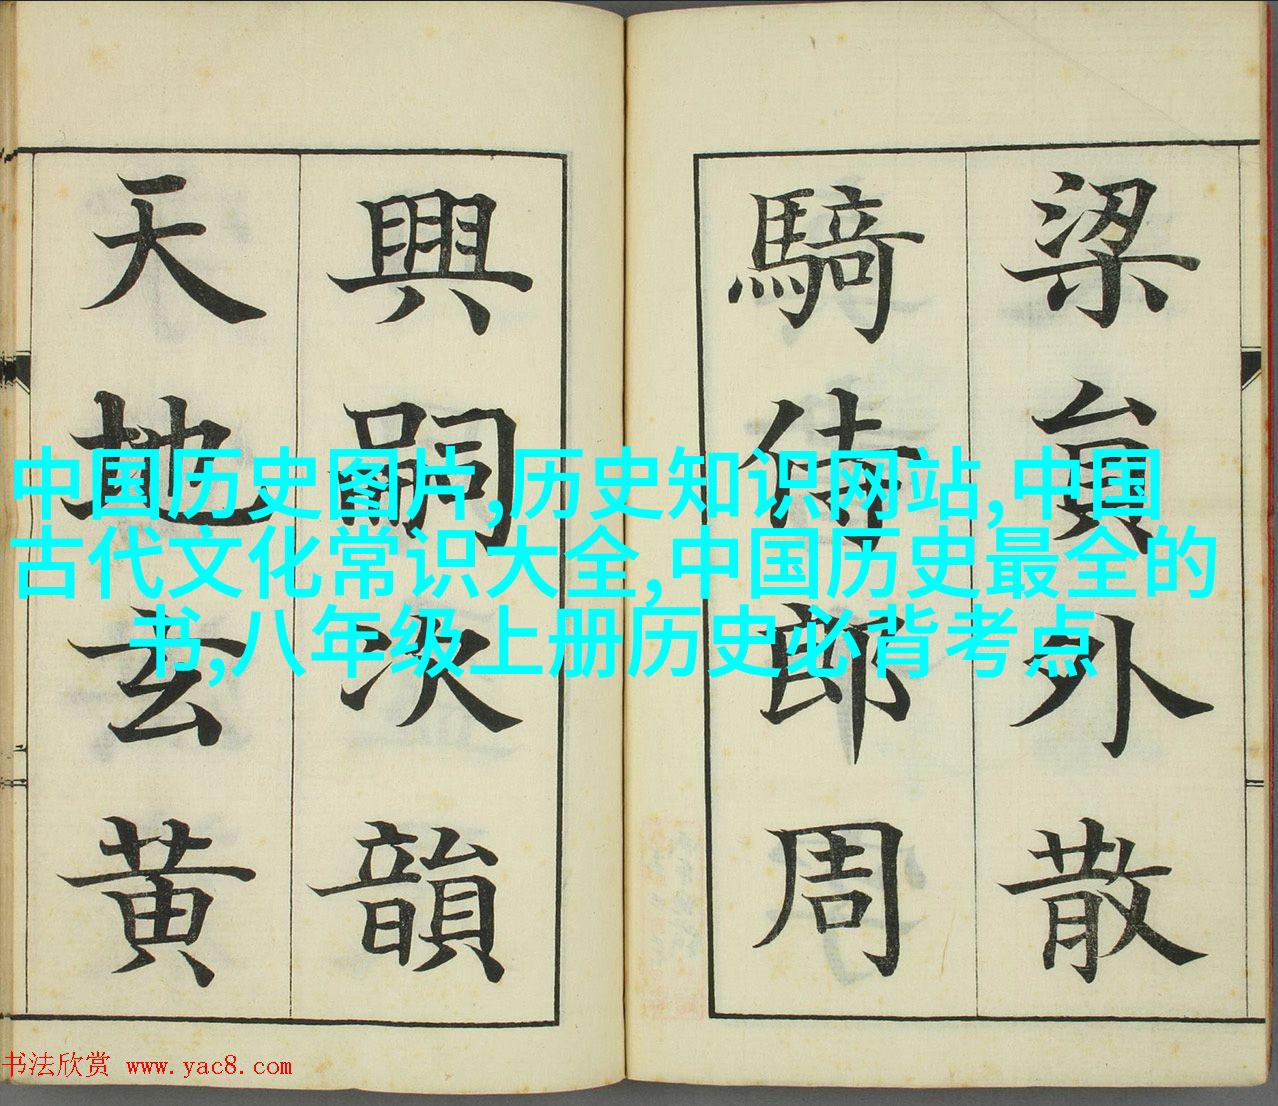 梁員外散
騎侍郎周
興嗣次韻
天地玄黃
中国历史图片,历史知识网站,中国
古代文化常识大全,中国历史最全的
书,八年级上册历史必背考点
书法欣赏 www.yac8.com